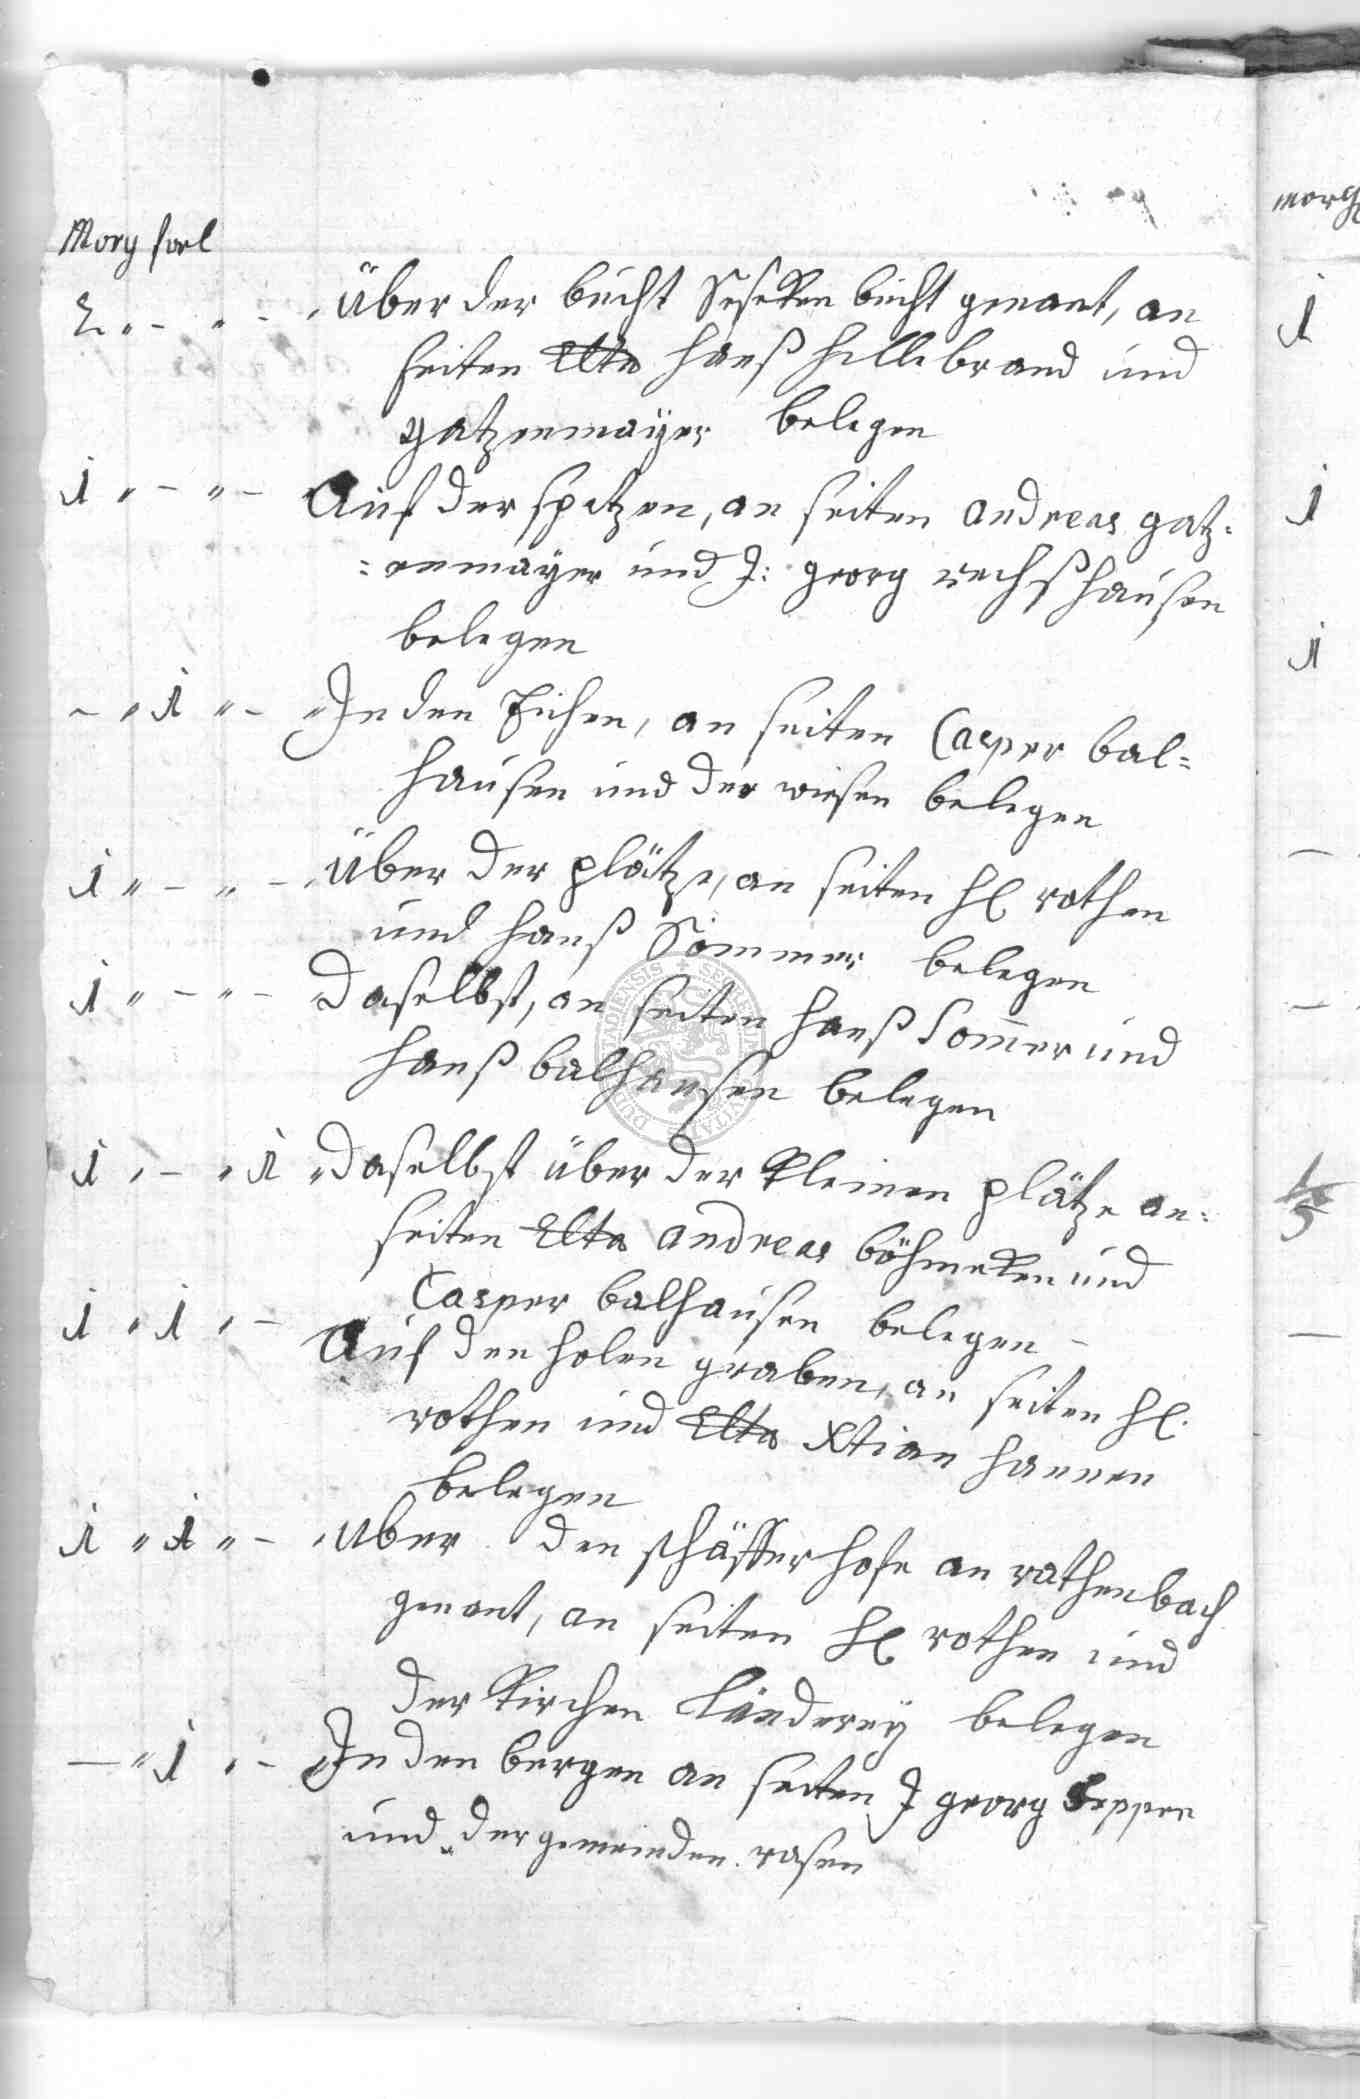 Morg forl
2 " - " - " Über der bucht Seseken bucht genant, an
seiten Elto Hanß Hillebrand und
gatzenmayer belegen
1 " - " - Auf der spitzen, an seiten Andreas gatz=
=enmayer und J: georg rechßhausen
belegen
- " 1 " - " In den Eichen, an seiten Casper bal=
hausen und der wiesen belegen
1 " - " - " Über der plätze, an seiten H rothen
und Hanß Sommer belegen
1 " - " - Daselbst, an seiten Hanß Som̄er und
Hanß balhausen belegen
1 " - " 1 " Daselbst über der kleinen plätze an=
seiten Elto Andreas böhmeken und
Casper balhausen belegen -
1 " 1 " - Auf den holen graben, an seiten H.
rothen und Elto Xtian Hannen
belegen
1 " 1 " - " Uber den schäffer hofe an rothenbach
genant, an seiten H rothen und
der Kirchen Länderey belegen
- " 1 " - " In den bergen an seiten J georg Seppen
und der gemeinden rasen
morg
1
1
1